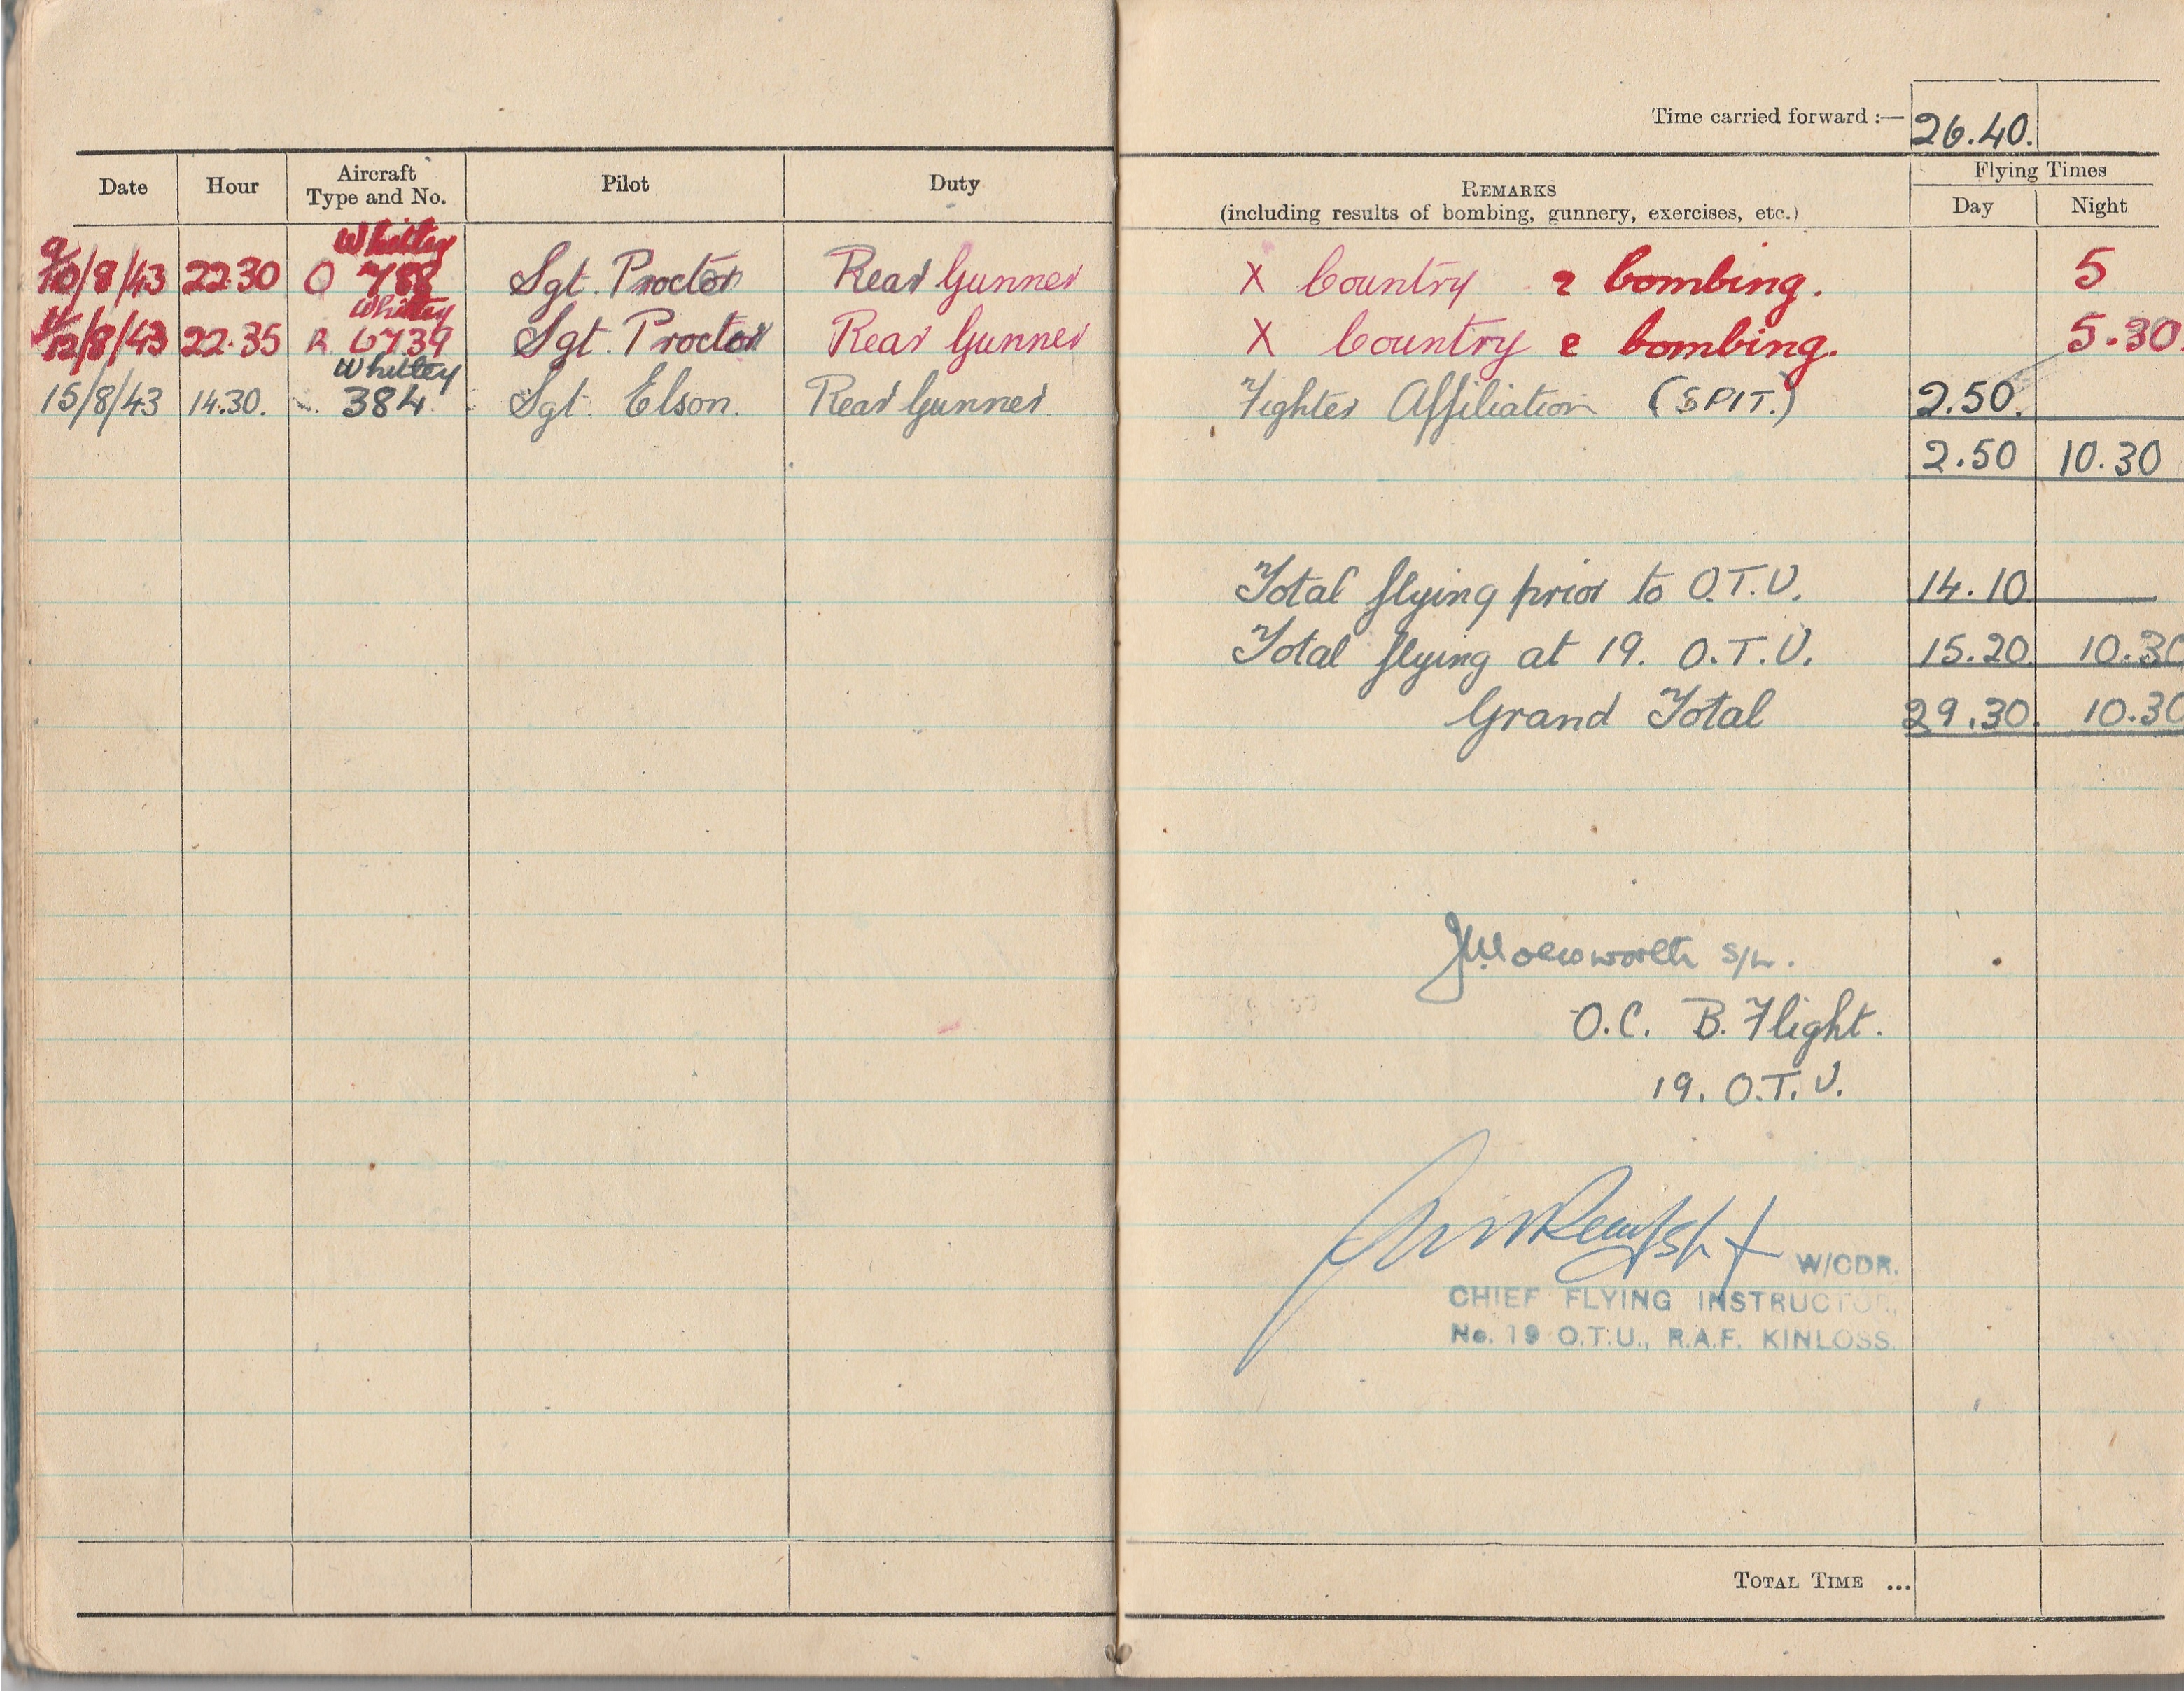 Time carried forward :— 26.40.
Date Hour Aircraft Type and No. Pilot Duty REMARKS (including results of bombing, gunnery, exercises, etc.) Flying Times Day Night
9/10/8/43 22.30 Whitley O 788 Sgt. Proctor Rear Gunner X Country & bombing. 5
11/12/8/43 22.35 Whitley R 6739 Sgt. Proctor Rear Gunner X Country & bombing. 5.30
15/8/43 14.30. Whitley 384 Sgt. Elson. Rear Gunner. Fighter Affiliation (SPIT.) 2.50.
2.50 10.30
Total flying prior to O.T.U. 14.10 —
Total flying at 19. O.T.U. 15.20 10.30
Grand Total 29.30. 10.30
S/L.
O.C. B. Flight.
19. O.T.U.
W/CDR.
CHIEF FLYING INSTRUCTOR,
No. 19 O.T.U., R.A.F. KINLOSS.
TOTAL TIME ...